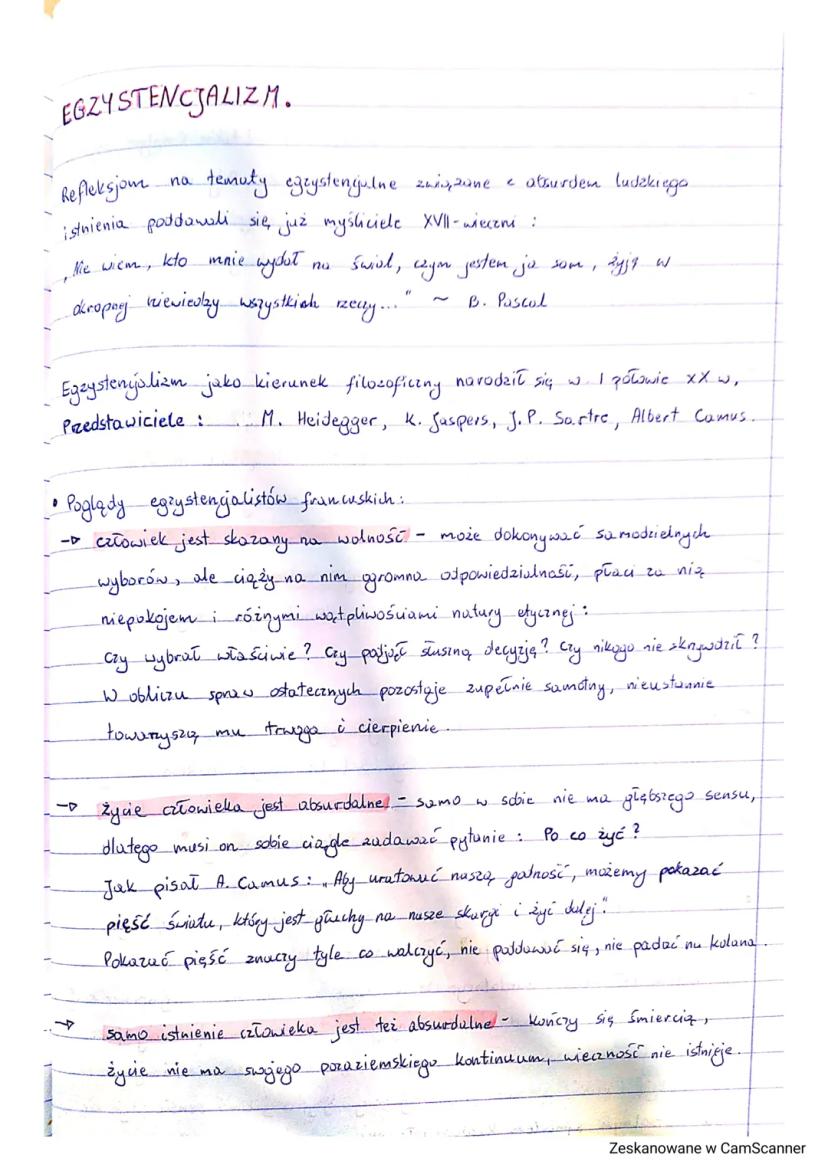 EGZYSTENCJALIZM.
Refleksjom na tematy egzystencjalne związane z absurdem ludzkiego
istnienia poddawali się już myśliciele XVII-wieczni :
„Nie wiem, kto mnie wydał na świat, czym jestem ja sam, żyję w
okropnej niewiedzy wszystkich rzeczy..." ~ B. Pascal
Egzystencjalizm jako kierunek filozoficzny narodził się w I połowie XX w.
Przedstawiciele : M. Heidegger, K. Jaspers, J.P. Sartre, Albert Camus.
• Poglądy egzystencjalistów francuskich :
→ człowiek jest skazany na wolność - może dokonywać samodzielnych
wyborów, ale ciąży na nim ogromna odpowiedzialność, płaci za nią
niepokojem i różnymi wątpliwościami natury etycznej :
Czy wybrał właściwie ? Czy podjął słuszną decyzję ? Czy nikogo nie skrzywdził ?
W obliczu spraw ostatecznych pozostaje zupełnie samotny, nieustannie
towarzyszą mu trwoga i cierpienie.
→ życie człowieka jest absurdalne - samo w sobie nie ma głębszego sensu,
dlatego musi on sobie ciągle zadawać pytanie : Po co żyć ?
Jak pisał A. Camus : „Aby uratować naszą godność, możemy pokazać
pięść światu, który jest głuchy na nasze skargi i żyć dalej."
Pokazać pięść znaczy tyle co walczyć, nie poddawać się, nie padać na kolana.
→ samo istnienie człowieka jest też absurdalne - kończy się śmiercią,
życie nie ma swojego pozaziemskiego kontinuum, wieczność nie istnieje.
Zeskanowane w CamScanner